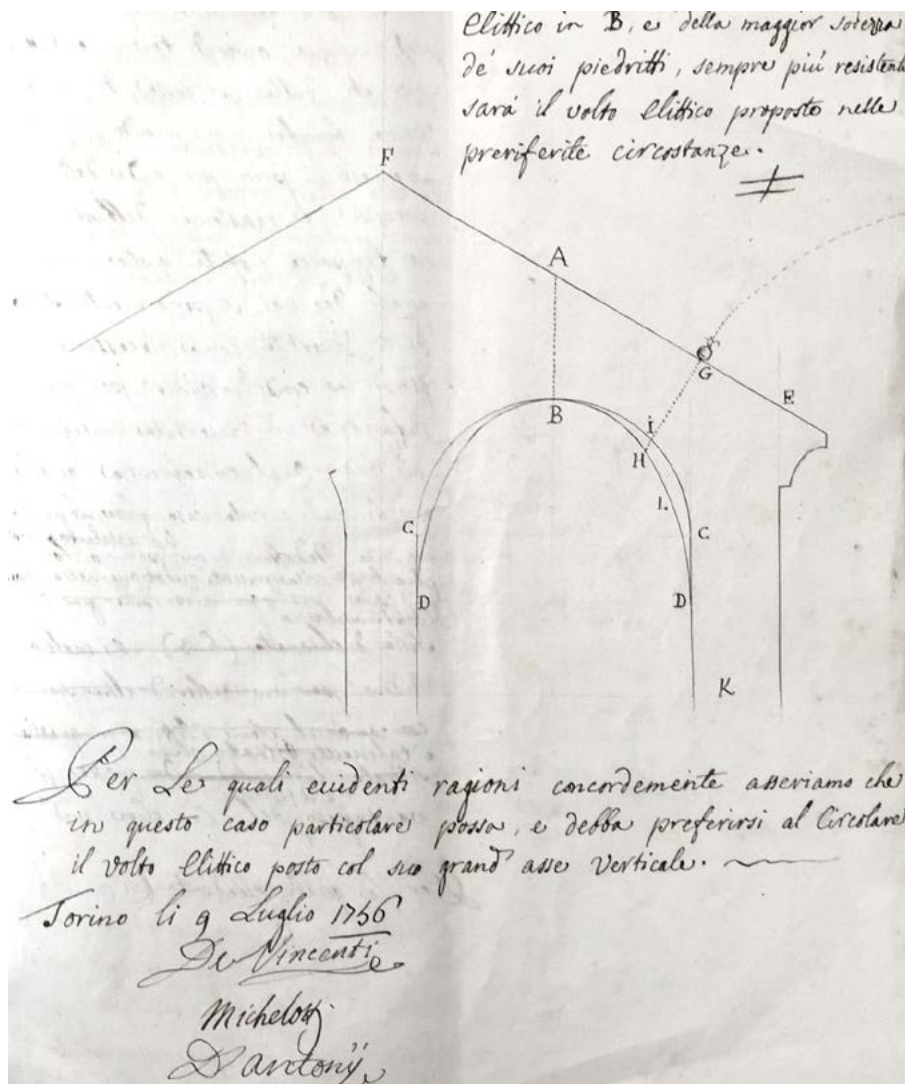 Elittico in B, e della maggior sodezza
de' suoi piedritti, sempre più resistente
sarà il volto Elittico proposto nelle
preriferite circostanze.
F
A
G
E
B
i
H
L
C
C
D
D
K
Per Le quali evidenti ragioni concordemente asseriamo che
in questo caso particolare possa, e debba preferirsi al Circolare
il volto Elittico posto col suo grand' asse Verticale.
Torino li 9 Luglio 1756
De Vincenti
Michelotti
D'antonij